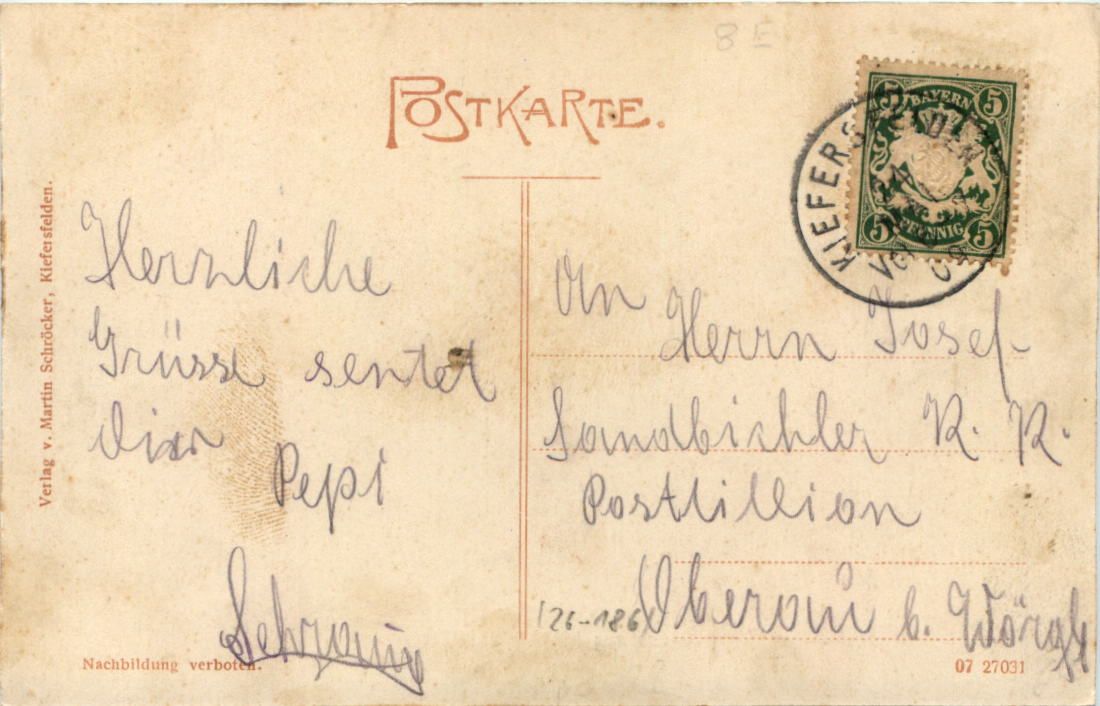 8 E
POSTKARTE.
BAYERN
5 5
PFENNIG
5 5
KIEFERSFELDEN
Verlag v. Martin Schröcker, Kiefersfelden.
Herzliche
Grüsse sentet
dir
Pepi
An
Herrn Josef
Sandbichler K. K.
Postillion
Oberau b. Wörgl
126-186
Nachbildung verboten.
07 27031